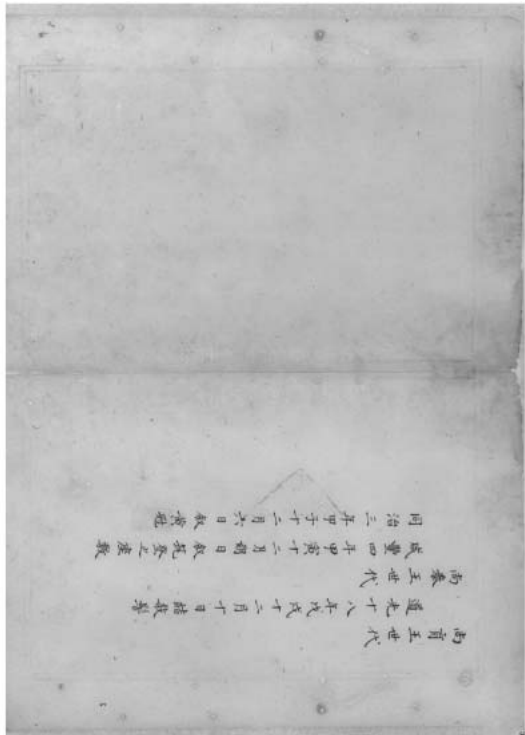 尚育王世代
道光十八年戊戌十二月十日結欹髻
尚泰王世代
咸豐四年甲寅十二月朔日叙筑登之座敷
同治三年甲子十二月六日叙黄冠